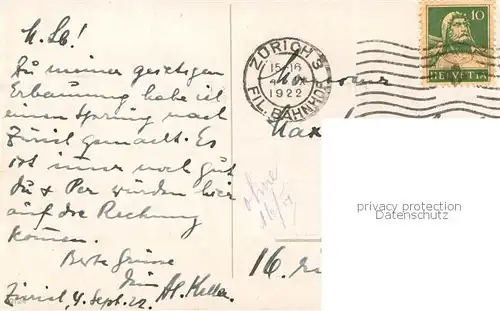 M. Lb!
Zu meiner geistigen
Erbauung habe ich
einen Sprung nach
Zürich gemacht. Es
ist immer noch gut
du & Per würden hier
auf die Rechnung
kommen.
Beste Grüsse
dein A. Keller
Zürich, 4. Sept. 22.
ZÜRICH 3
1922
FIL. BAHNHOF
10
HELVETIA
Monsieur
Max
16.
privacy protection
Datenschutz